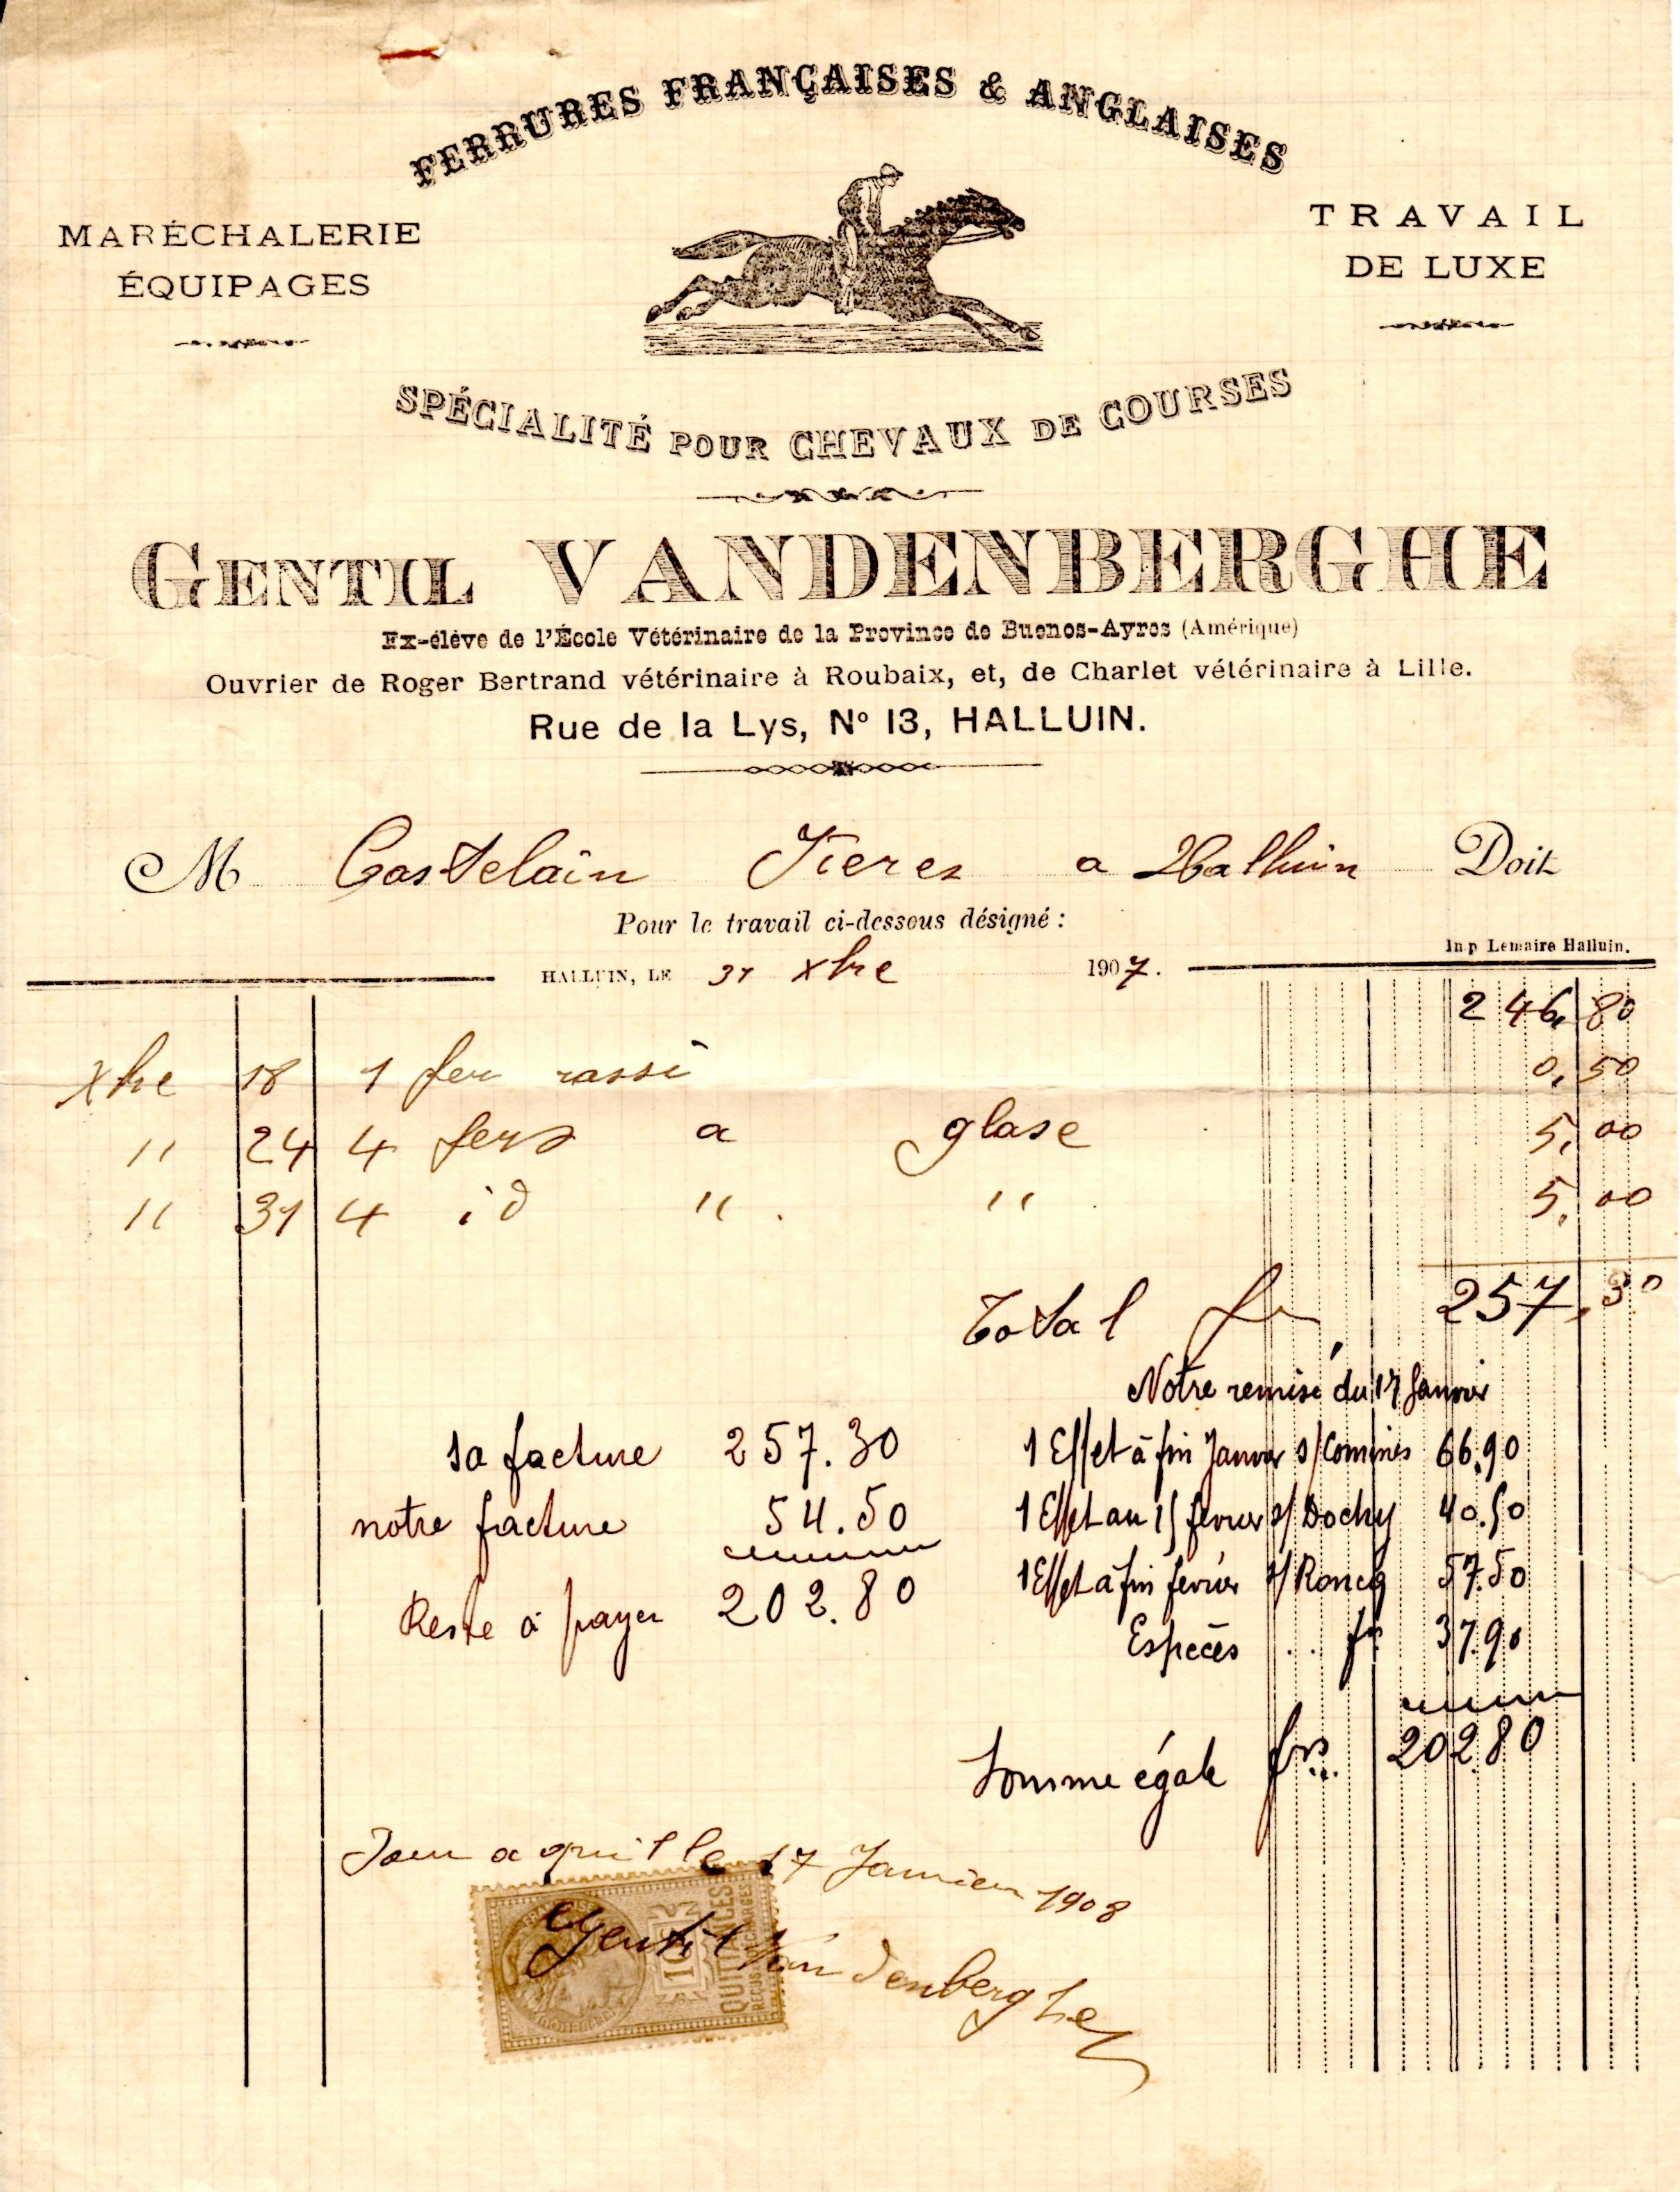 FERRURES FRANÇAISES & ANGLAISES
MARÉCHALERIE
ÉQUIPAGES
TRAVAIL
DE LUXE
SPÉCIALITÉ POUR CHEVAUX DE COURSES
GENTIL VANDENBERGHE
Ex-élève de l'École Vétérinaire de la Province de Buenos-Ayres (Amérique)
Ouvrier de Roger Bertrand vétérinaire à Roubaix, et, de Charlet vétérinaire à Lille.
Rue de la Lys, N° 13, HALLUIN.
M Castelain a Halluin Doit
Pour le travail ci-dessous désigné :
Imp Lemaire Halluin.
HALLUIN, LE 31 Xbre 1907.
246,80
Xbre 18 1 fer rassi 0,50
" 24 4 fers a glase 5,00
" 31 4 id " . " 5,00
Total fr 257,30
Notre remise du 17 Janvier
sa facture 257.30
notre facture 54.50
Reste à payer 202.80
1 Effet à fin Janvier s/ Comines 66.90
1 Effet au 15 fevrier s/ Dochy 40.50
1 Effet à fin fevrier s/ Roncq 57.50
Espèces .. fr 37.90
Somme égale frs... 202.80
Pour aquit le 17 Janvier 1908
Gentil Vandenberghe
10
QUITTANCES
REÇUS & DÉCHARGES